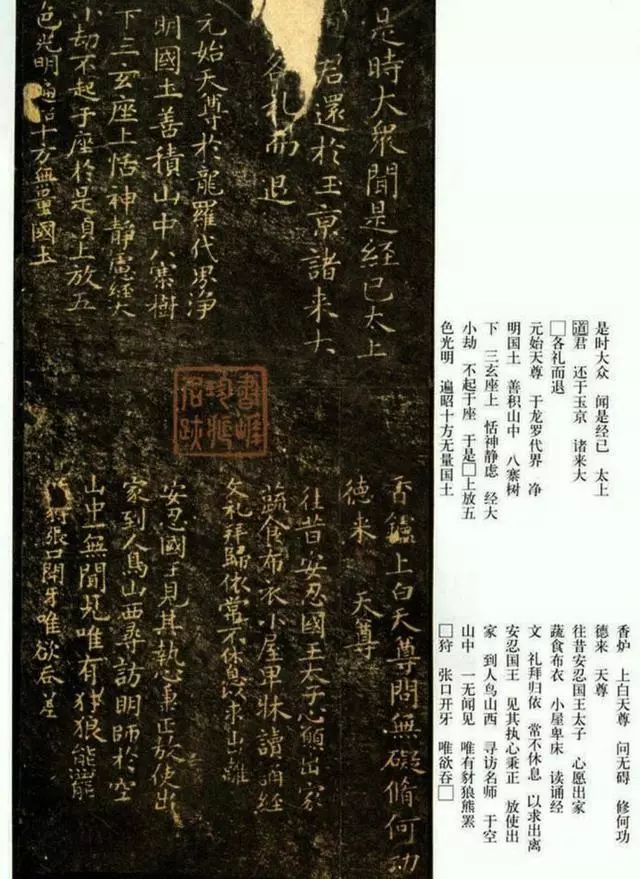 是時大眾聞是經已太上
君還於玉京諸来大
各礼而退
元始天尊於龍羅代界淨
明國土善積山中八寨樹
下三玄座上恬神靜慮經大
小劫不起于座於是貞上放五
色光明遍昭十方無量國土
香鑪上白天尊問無礙脩何功
德来 天尊
往昔安忍國王太子心願出家
蔬食布衣小屋卑牀讀誦經
文礼拜歸依常不休息以求出離
安忍國王見其執心秉正放使出
家到人鳥山西尋訪明師於空
山中一無聞見唯有犲狼熊羆
狩張口開牙唯欲吞
是时大众 闻是经已 太上
道君 还于玉京 诸来大
□各礼而退
元始天尊 于龙罗代界 净
明国土 善积山中 八寨树
下 三玄座上 恬神静虑 经大
小劫 不起于座 于是□上放五
色光明 遍昭十方无量国土
香炉 上白天尊 问无碍 修何功
德来 天尊
往昔安忍国王太子 心愿出家
蔬食布衣 小屋卑床 读诵经
文 礼拜归依 常不休息 以求出离
安忍国王 见其执心秉正 放使出
家 到人鸟山西 寻访名师 于空
山中 一无闻见 唯有豺狼熊罴
□狩 张口开牙 唯欲吞□